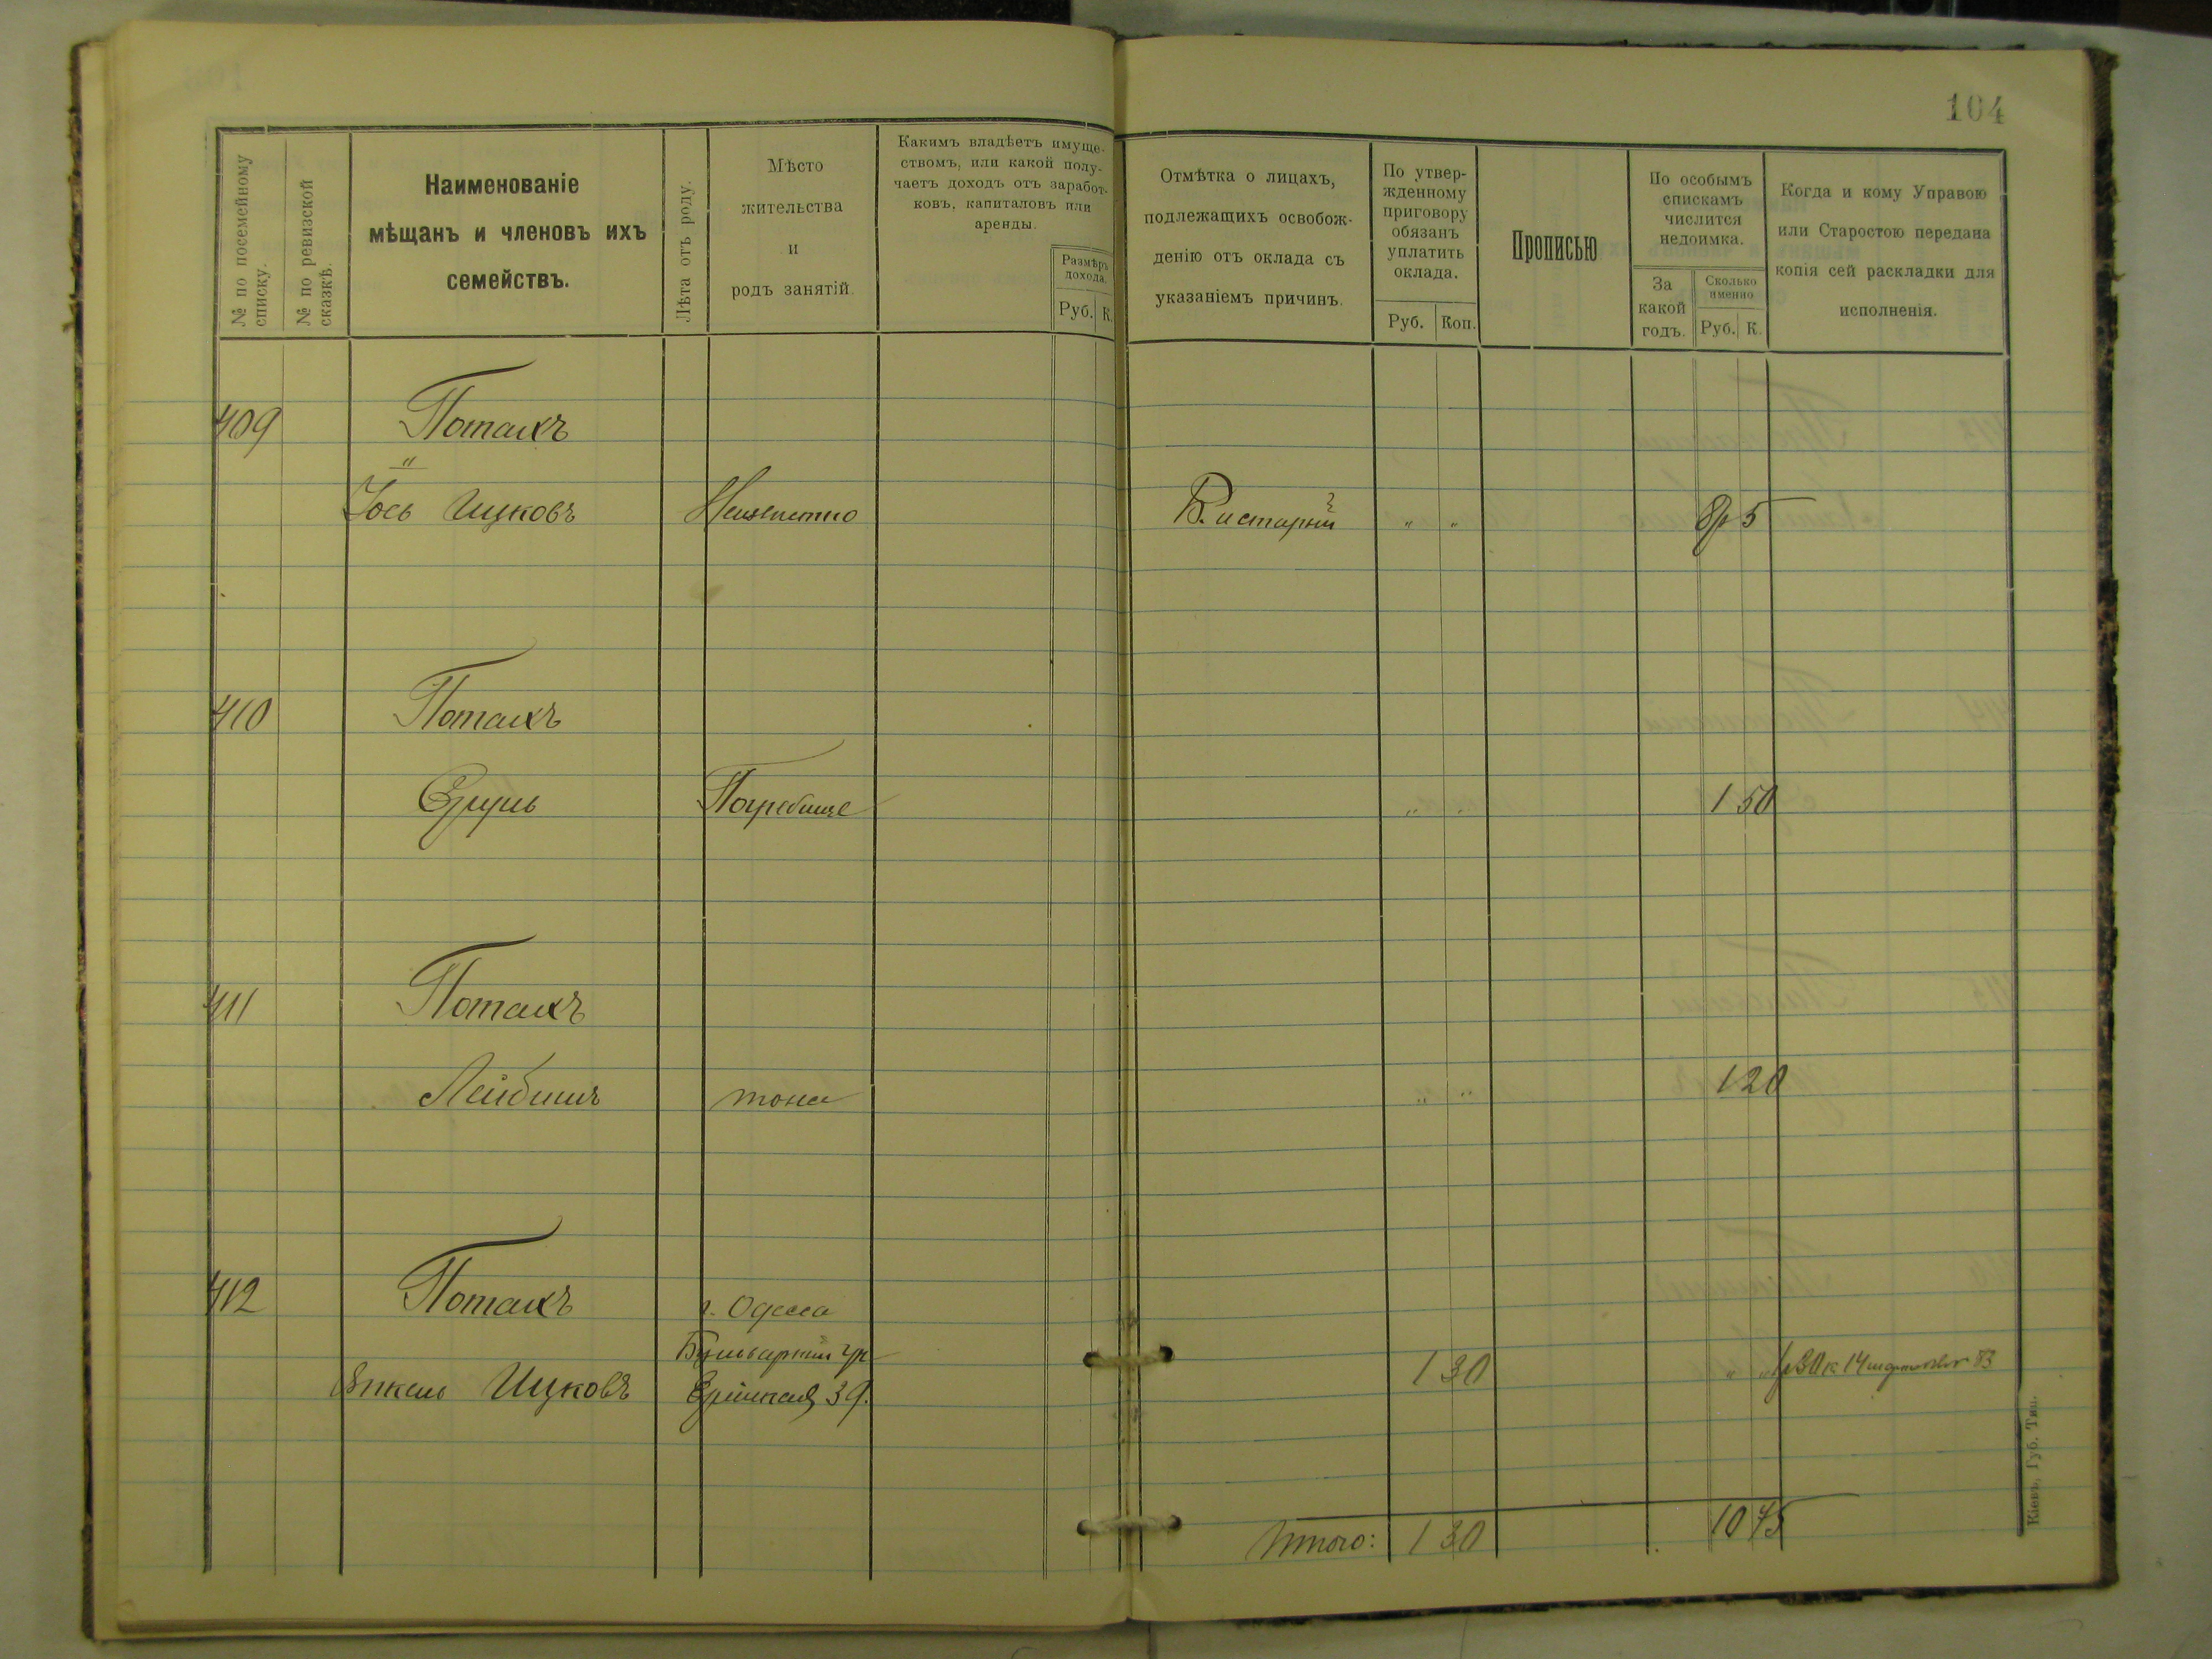 104
№ по посемейному списку.
№ по ревизской сказкѣ.
Наименованіе
мѣщанъ и членовъ ихъ
семействъ.
Лѣта отъ роду.
Мѣсто
жительства
и
родъ занятій.
Какимъ владѣетъ имуще-
ствомъ, или какой полу-
чаетъ доходъ отъ заработ-
ковъ, капиталовъ или
аренды.
Размѣръ
дохода.
Руб. К.
Отмѣтка о лицахъ,
подлежащихъ освобож-
денію отъ оклада съ
указаніемъ причинъ.
По утвер-
жденному
приговору
обязанъ
уплатить
оклада.
Руб. Коп.
Прописью
По особымъ
спискамъ
числится
недоимка.
За
какой
годъ.
Сколько
именно
Руб. К.
Когда и кому Управою
или Старостою передана
копія сей раскладки для
исполненія.
409 Потакъ
"
Іось Ицковъ " " 8р 5
410 Потакъ
Погребище " " 1 50
411 Потакъ
Лейбишъ тоже " " 120
412 Потакъ г. Одесса
Янкель Ицковъ 39. 1 30 " "
Итого: 1 30 10 75
Кіевъ, Губ. Тип.